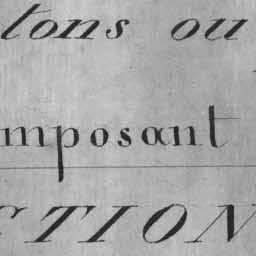 tons ou
mposant
CTION